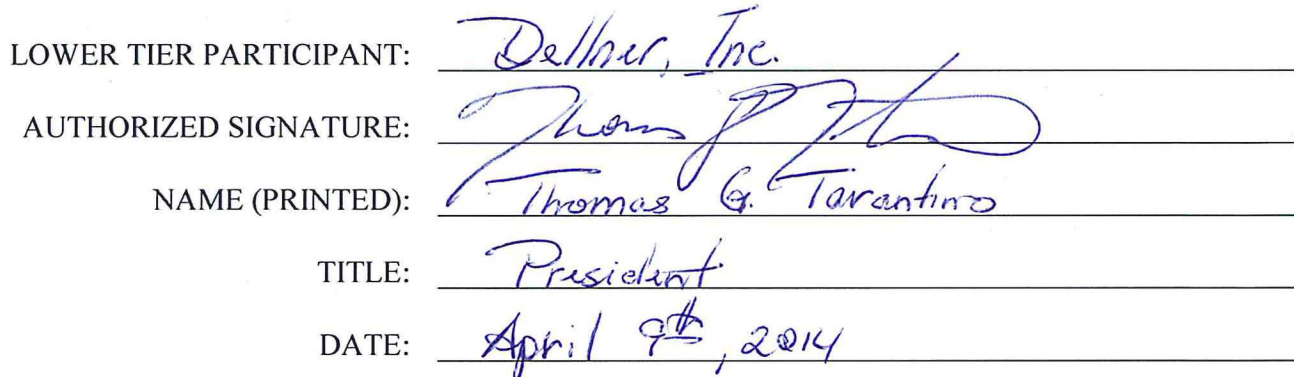 LOWER TIER PARTICIPANT: Dellner, Inc.
AUTHORIZED SIGNATURE: Thomas G. Tarantino
NAME (PRINTED): Thomas G. Tarantino
TITLE: President
DATE: April 9th, 2014